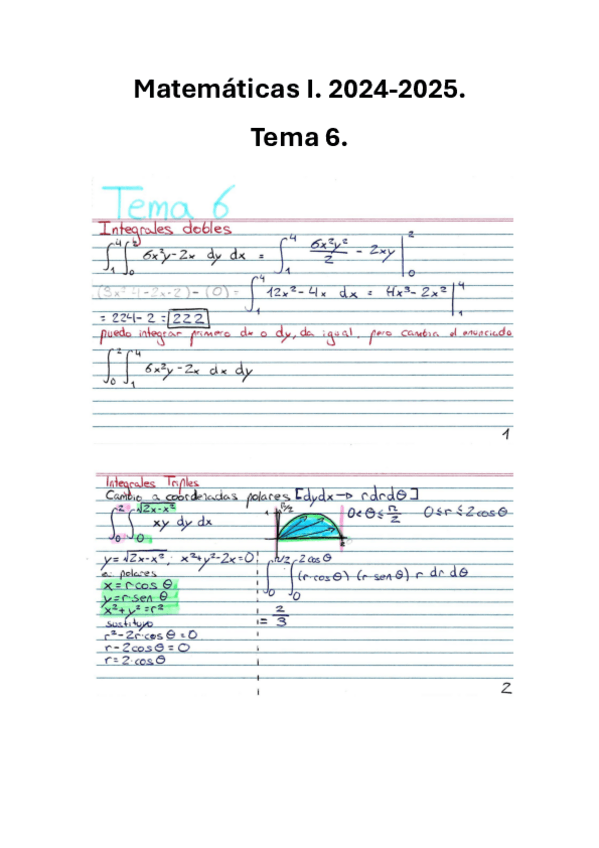 Matemáticas I. 2024-2025.
Tema 6.
Tema 6
Integrales dobles
∫₁⁴∫₀² 6x²y-2x dy dx = ∫₁⁴ 6x²y²/2 - 2xy |₀²
(3x²·4-2x·2)-(0) = ∫₁⁴ 12x²-4x dx = 4x³-2x² |₁⁴
= 224-2 = 222
puedo integrar primero dx o dy, da igual, pero cambia el enunciado
∫₀²∫₁⁴ 6x²y-2x dx dy
1
Integrales Triples
Cambio a coordenadas polares [dydx→ rdrdθ]
∫₀²∫₀^√2x-x² xy dy dx
π/2
1
2
0<θ≤π/2 0≤r≤2cosθ
y=√2x-x²; x²+y²-2x=0;
a polares
x=r cos θ
y=r sen θ
x²+y²=r²
sustituyo
r²-2r cos θ=0
r-2cos θ=0
r=2 cos θ
∫₀^π/2∫₀^2cosθ (r cos θ) (r sen θ) r dr dθ
= 2/3
2